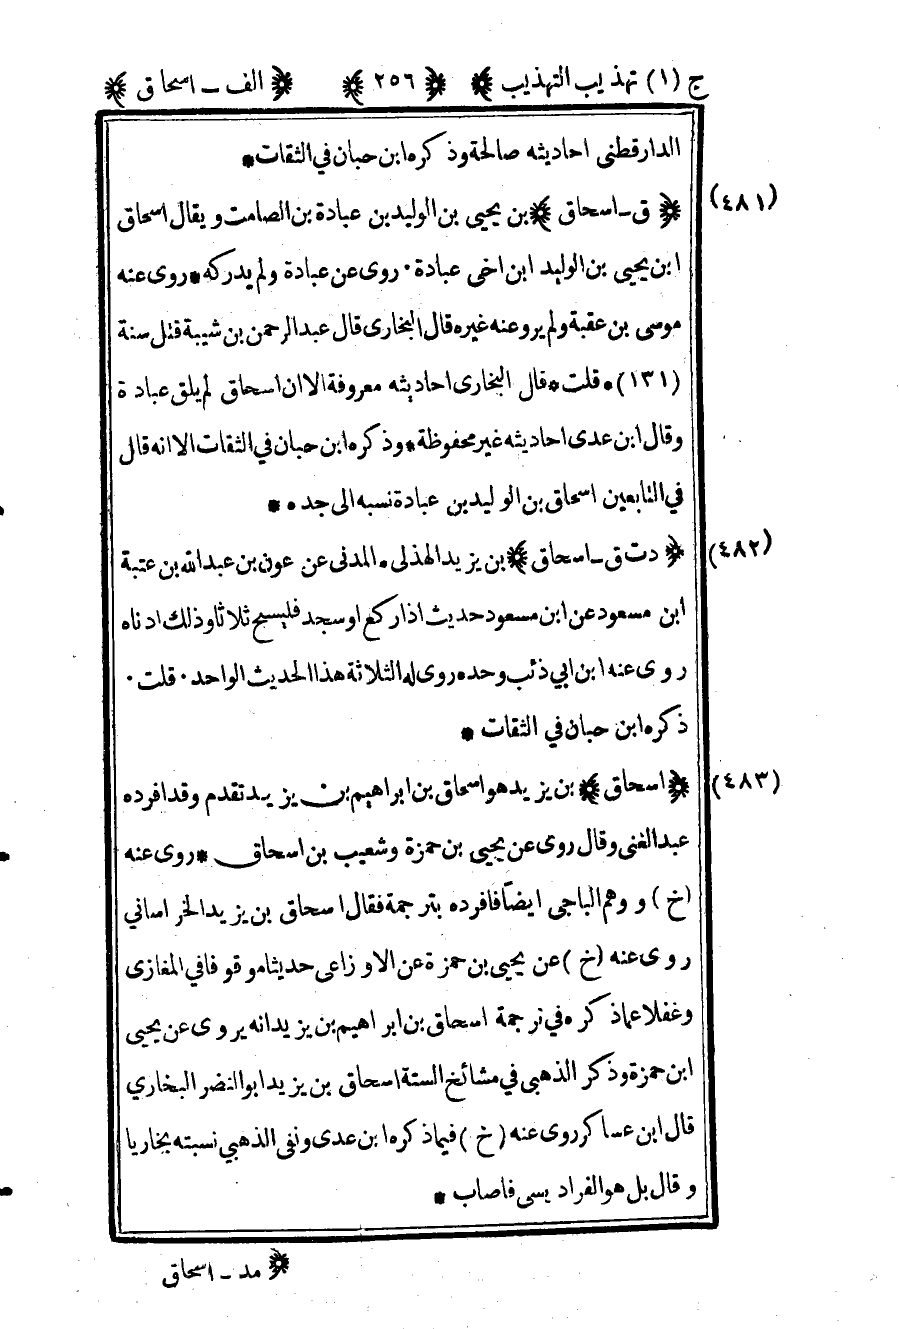 ج (١) تهذيب التهذيب ﴿ ٢٥٦ ﴾ الف ـ اسحاق
الدارقطنى احاديثه صالحة وذكره ابن حبان في الثقات *
(٤٨١) ﴿ ق ـ اسحاق ﴾ بن يحيى بن الوليد بن عبادة بن الصامت ويقال اسحاق
ابن يحيى بن الوليد ابن اخى عبادة . روى عن عبادة ولم يدركه * روى عنه
موسى بن عقبة ولم يرو عنه غيره قال البخارى قال عبد الرحمن بن شيبة قتل سنة
(١٣١) * قلت * قال البخارى احاديثه معروفة الا ان اسحاق لم يلق عبادة
وقال ابن عدى احاديثه غير محفوظة * وذكره ابن حبان في الثقات الا انه قال
في التابعين اسحاق بن الوليد بن عبادة نسبه الى جده *
(٤٨٢) ﴿ دت ق ـ اسحاق ﴾ بن يزيد الهذلى . المدنى عن عون بن عبد الله بن عتبة
ابن مسعود عن ابن مسعود حديث اذا ركع او سجد فليسبح ثلاثا وذلك ادناه
روى عنه ابن ابي ذئب وحده روى له الثلاثة هذا الحديث الواحد . قلت .
ذكره ابن حبان في الثقات *
(٤٨٣) ﴿ اسحاق ﴾ بن يزيد هو اسحاق بن ابراهيم بن يزيد تقدم وقد افرده
عبد الغنى وقال روى عن يحيى بن حمزة وشعيب بن اسحاق * روى عنه
(خ) ووهم الباجى ايضاً فافرده بترجمة فقال اسحاق بن يزيد الخراساني
روى عنه (خ) عن يحيى بن حمزة عن الاوزاعى حديثا موقوفا في المغازى
وغفلا عما ذكره في ترجمة اسحاق بن ابراهيم بن يزيد انه يروى عن يحيى
ابن حمزة وذكر الذهبي في مشائخ الستة اسحاق بن يزيد ابو النضر البخاري
قال ابن عساكر روى عنه (خ) فيما ذكره ابن عدى ونفى الذهبي نسبته بخاريا
وقال بل هو الفراديسى فاصاب *
﴿ مد ـ اسحاق